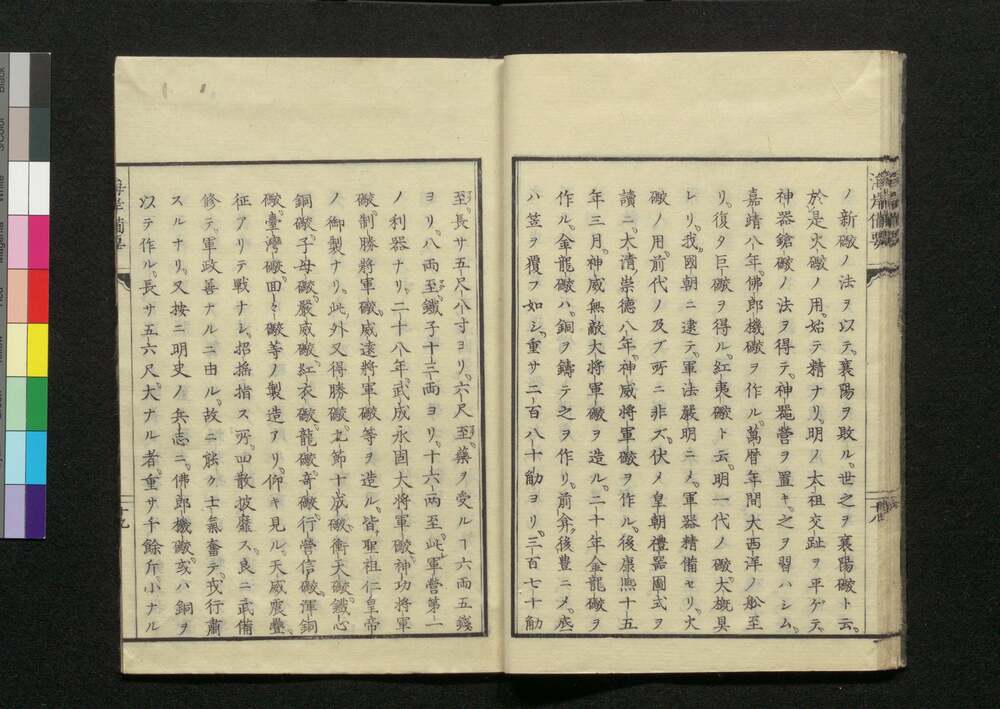 ノ新礟ノ法ヲ以テ。襄陽ヲ敗ル。世之ヲ襄陽礟ト云。
於是火礟ノ用。始テ精ナリ。明ノ太祖交趾ヲ平ゲテ。
神器鎗礟ノ法ヲ得テ。神器營ヲ置キ。之ヲ習ハシム。
嘉靖八年。佛郎機礟ヲ作ル。萬曆年間大西洋ノ舩至
リ。復タ巨礟ヲ得ル。紅夷礟ト云。明一代ノ礟。大概具
レリ。我國朝ニ逮テ。軍法嚴明ニメ。軍器精備セリ。火
礟ノ用。前代ノ及ブ所ニ非ズ。伏メ皇朝禮器圖式ヲ
讀ニ。大清ノ崇德八年。神威將軍礟ヲ作ル。後康熙十五
年三月。神威無敵大將軍礟ヲ造ル。二十年金龍礟ヲ
作ル。金龍礟ハ。銅ヲ鑄テ之ヲ作リ。前弇後豊ニメ。底
ハ笠ヲ覆フ如シ。重サ二百八十觔ヨリ。三百七十觔
至。長サ五尺八寸ヨリ。六尺至。藥ヲ受ルヿ六兩五錢
ヨリ。八兩至。鐵子十三兩ヨリ。十六兩至。此軍營第一
ノ利器ナリ。二十八年。武成永固大將軍礟。神功將軍
礟。制勝將軍礟。威遠將軍礟等ヲ造ル。皆聖祖仁皇帝
ノ御製ナリ。此外又得勝礟。九節十成礟。衝天礟。鐵心
銅礟。子母礟。嚴威礟。紅衣礟。龍礟。奇礟。行營信礟。渾銅
礟。臺灣礟。回々礟等ノ製造アリ。仰キ見ル。天威震疊。
征アリテ戰ナシ。招搖指ス所。四散披靡ス。良ニ武備
修テ。軍政善ナルニ由ル。故ニ能ク士氣奮テ。戎行肅
スルナリ。又按ニ明史ノ兵志ニ。佛郎機礟。或ハ銅ヲ
以テ作ル。長サ五六尺。大ナル者。重サ千餘斤。小ナル